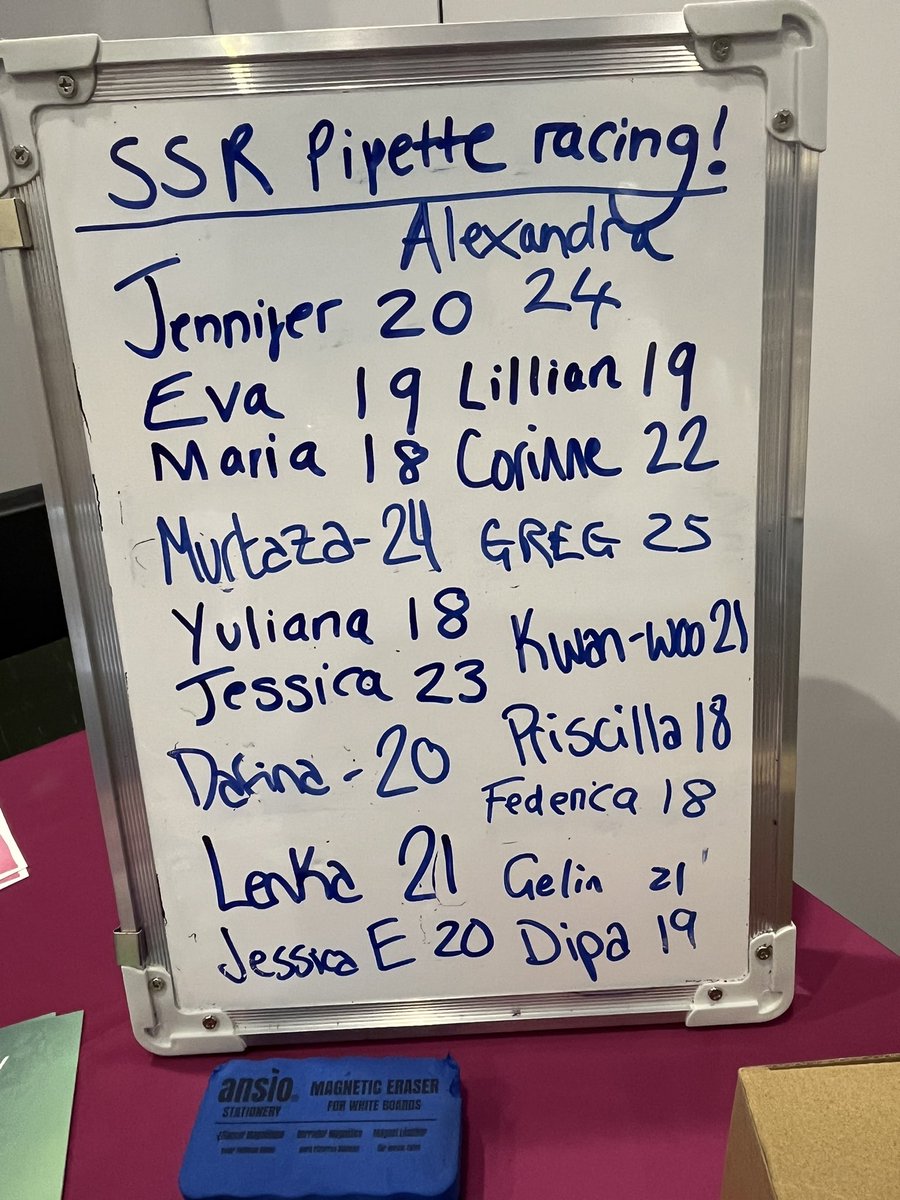 SSR Pipette racing!
Alexandra
Jennifer 20 24
Eva 19 Lillian 19
Maria 18 Corinne 22
Murtaza-24 GREG 25
Yuliana 18 Kwan-woo 21
Jessica 23
Priscilla 18
Darina - 20
Federica 18
Lenka 21 Gelin 21
Jessica E 20 Dipa 19
ansio
STATIONERY
MAGNETIC ERASER
FOR WHITE BOARDS